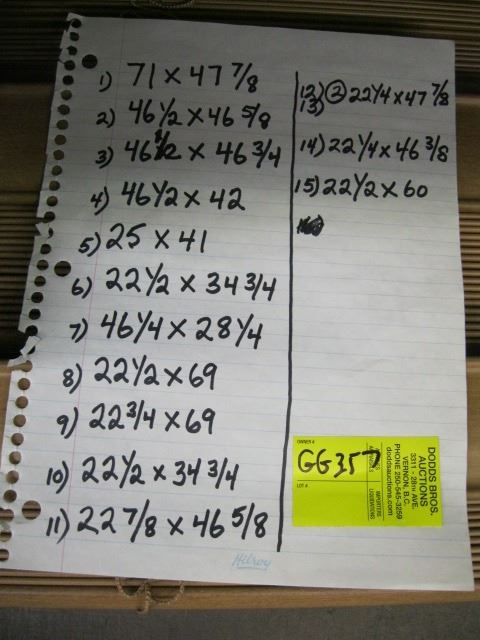 1) 71 x 47 7/8
2) 46 1/2 x 46 5/8
3) 46 1/2 x 46 3/4
4) 46 1/2 x 42
5) 25 x 41
6) 22 1/2 x 34 3/4
7) 46 1/4 x 28 1/4
8) 22 1/2 x 69
9) 22 3/4 x 69
10) 22 1/2 x 34 3/4
11) 22 7/8 x 46 5/8
12) 13) ② 22 1/4 x 47 7/8
14) 22 1/4 x 46 3/8
15) 22 1/2 x 60
DODDS BROS.
AUCTIONS
3311 - 28TH AVE.
VERNON, B.C.
PHONE 250-545-3259
doddsauctions.com
IMPORTERS
LIQUIDATORS
OWNER #
GG357
LOT #
Hilroy